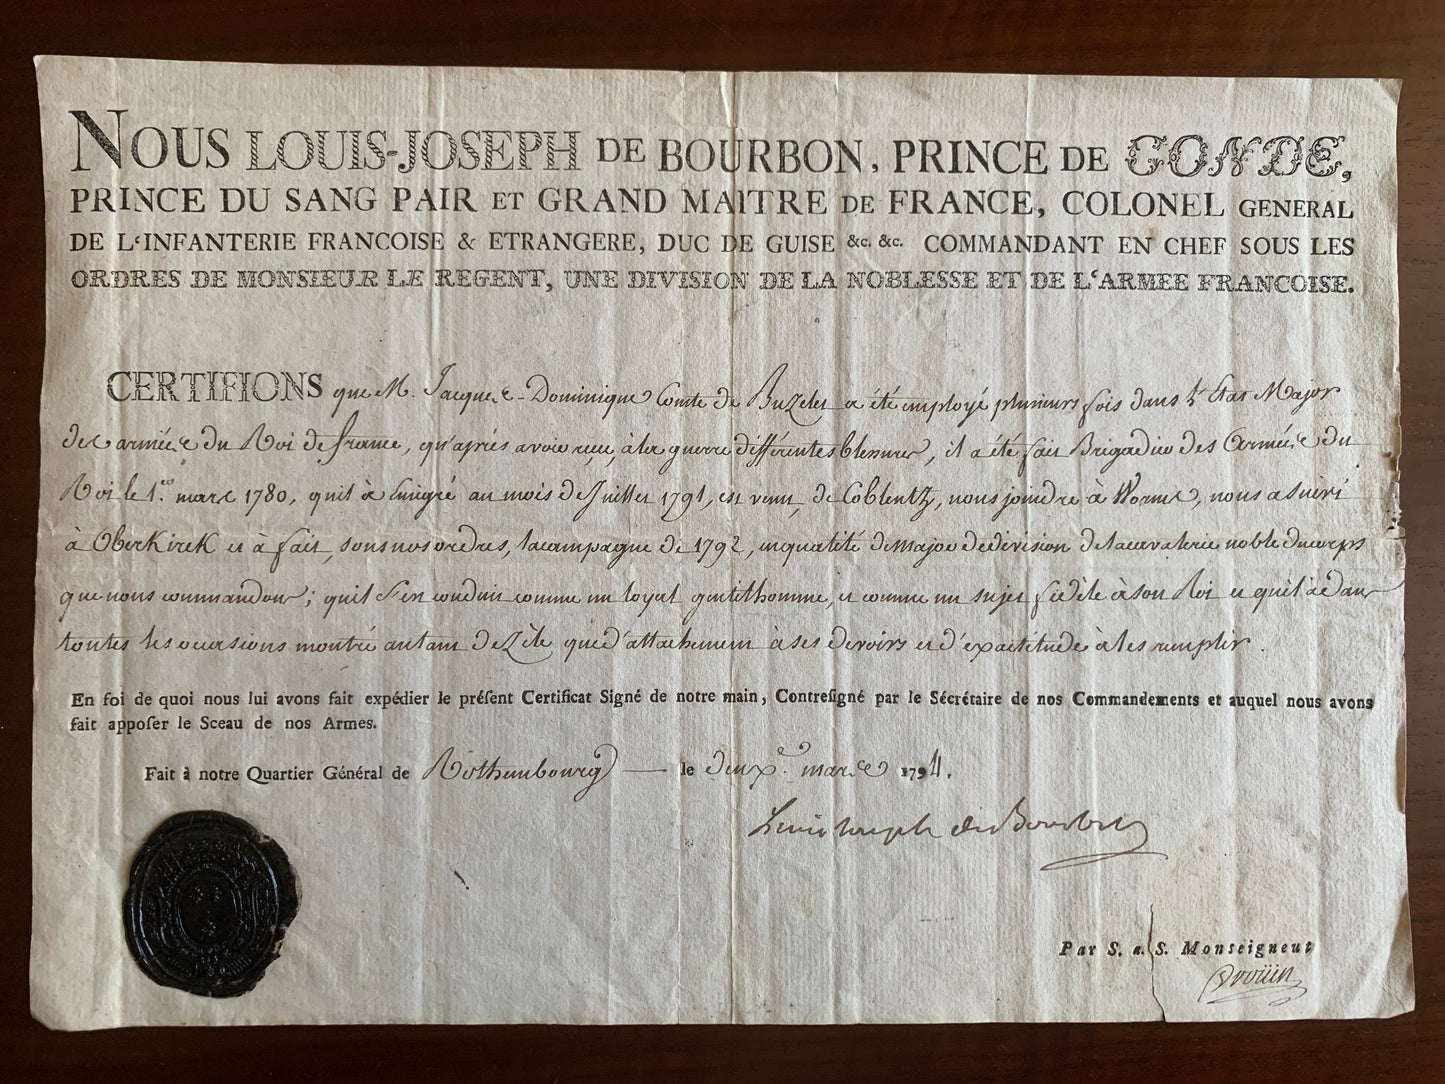 NOUS LOUIS-JOSEPH DE BOURBON, PRINCE DE CONDE,
PRINCE DU SANG PAIR ET GRAND MAITRE DE FRANCE, COLONEL GENERAL
DE L'INFANTERIE FRANCOISE & ETRANGERE, DUC DE GUISE &c. &c. COMMANDANT EN CHEF SOUS LES
ORDRES DE MONSIEUR LE REGENT, UNE DIVISION DE LA NOBLESSE ET DE L'ARMEE FRANCOISE.
CERTIFIONS que M. Jacques-Dominique Comte de Buzelet a été employé plusieurs fois dans l'Etat Major
des armées du Roi de france, qu'après avoir reçu, à la guerre différentes blessures, il a été fait Brigadier des Armées du
Roi le 1er mars 1780, qu'il à émigré au mois de Juillet 1791, est venu, de Coblentz, nous joindre à Worms, nous a suivi
à Oberkirck et à fait, sous nos ordres, la campagne de 1792, en qualité de major de division de la cavalerie noble du corps
que nous commandons; qu'il s'en conduit comme un loyal gentilhomme, et comme un sujet fidèle à son Roi et qu'il à dans
toutes les occasions montré autant de zèle que d'attachement à ses devoirs et d'exactitude à les remplir.
En foi de quoi nous lui avons fait expédier le préſent Certificat Signé de notre main, Contreſigné par le Sécrétaire de nos Commandements et auquel nous avons
fait appoſer le Sceau de nos Armes.
Fait à notre Quartier Général de Rothembourg — le deux mars 1794.
Louis Joseph de Bourbon
Par S. a. S. Monseigneur
Drouin